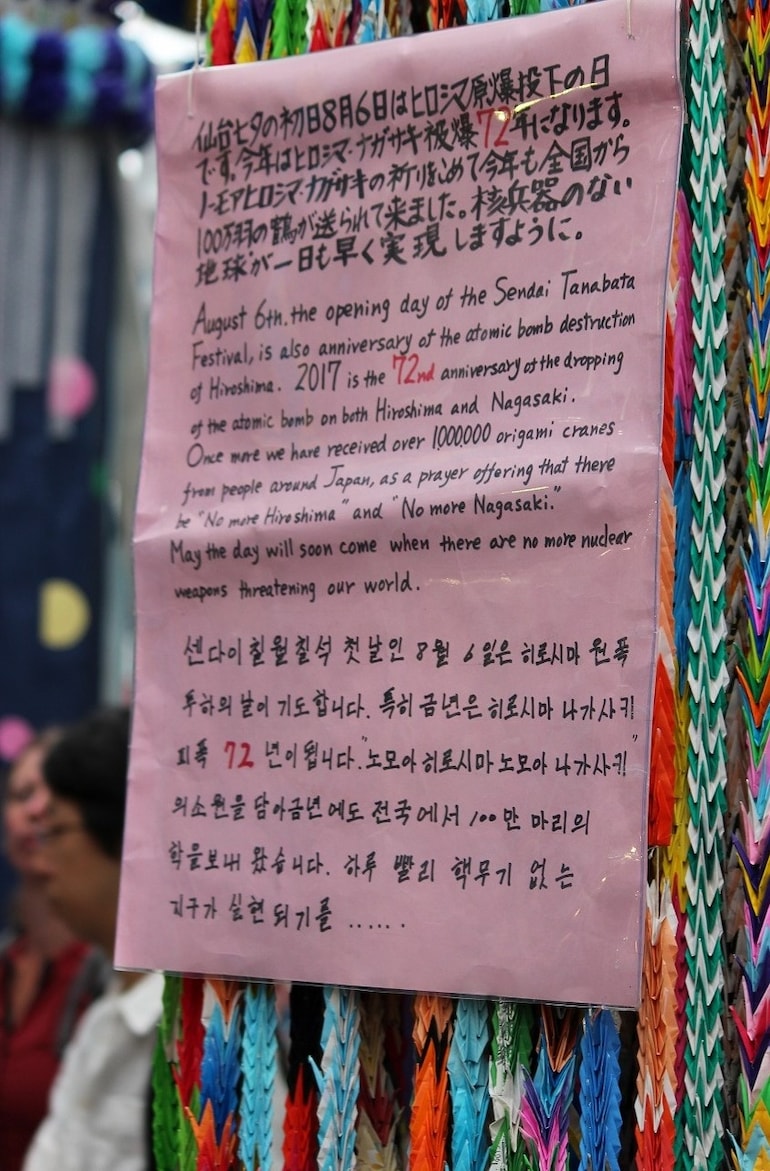 仙台七夕の初日8月6日はヒロシマ原爆投下の日
です。今年はヒロシマ・ナガサキ被爆72年になります。
ノーモアヒロシマ・ナガサキの祈りをこめて今年も全国から
100万羽の鶴が送られて来ました。核兵器のない
地球が一日も早く実現しますように。
August 6th. the opening day of the Sendai Tanabata
Festival, is also anniversary of the atomic bomb destruction
of Hiroshima. 2017 is the 72nd anniversary of the dropping
of the atomic bomb on both Hiroshima and Nagasaki.
Once more we have received over 1,000,000 origami cranes
from people around Japan, as a prayer offering that there
be "No more Hiroshima" and "No more Nagasaki."
May the day will soon come when there are no more nuclear
weapons threatening our world.
센다이 칠월칠석 첫날인 8월 6일은 히로시마 원폭
투하의 날이 기도합니다. 특히 금년은 히로시마 나가사키
피폭 72 년이 됩니다. "노모아 히로시마 노모아 나가사키"
의 소원을 담아 금년에도 전국에서 100만 마리의
학을 보내 왔습니다. 하루 빨리 핵무기 없는
지구가 실현되기를 ......